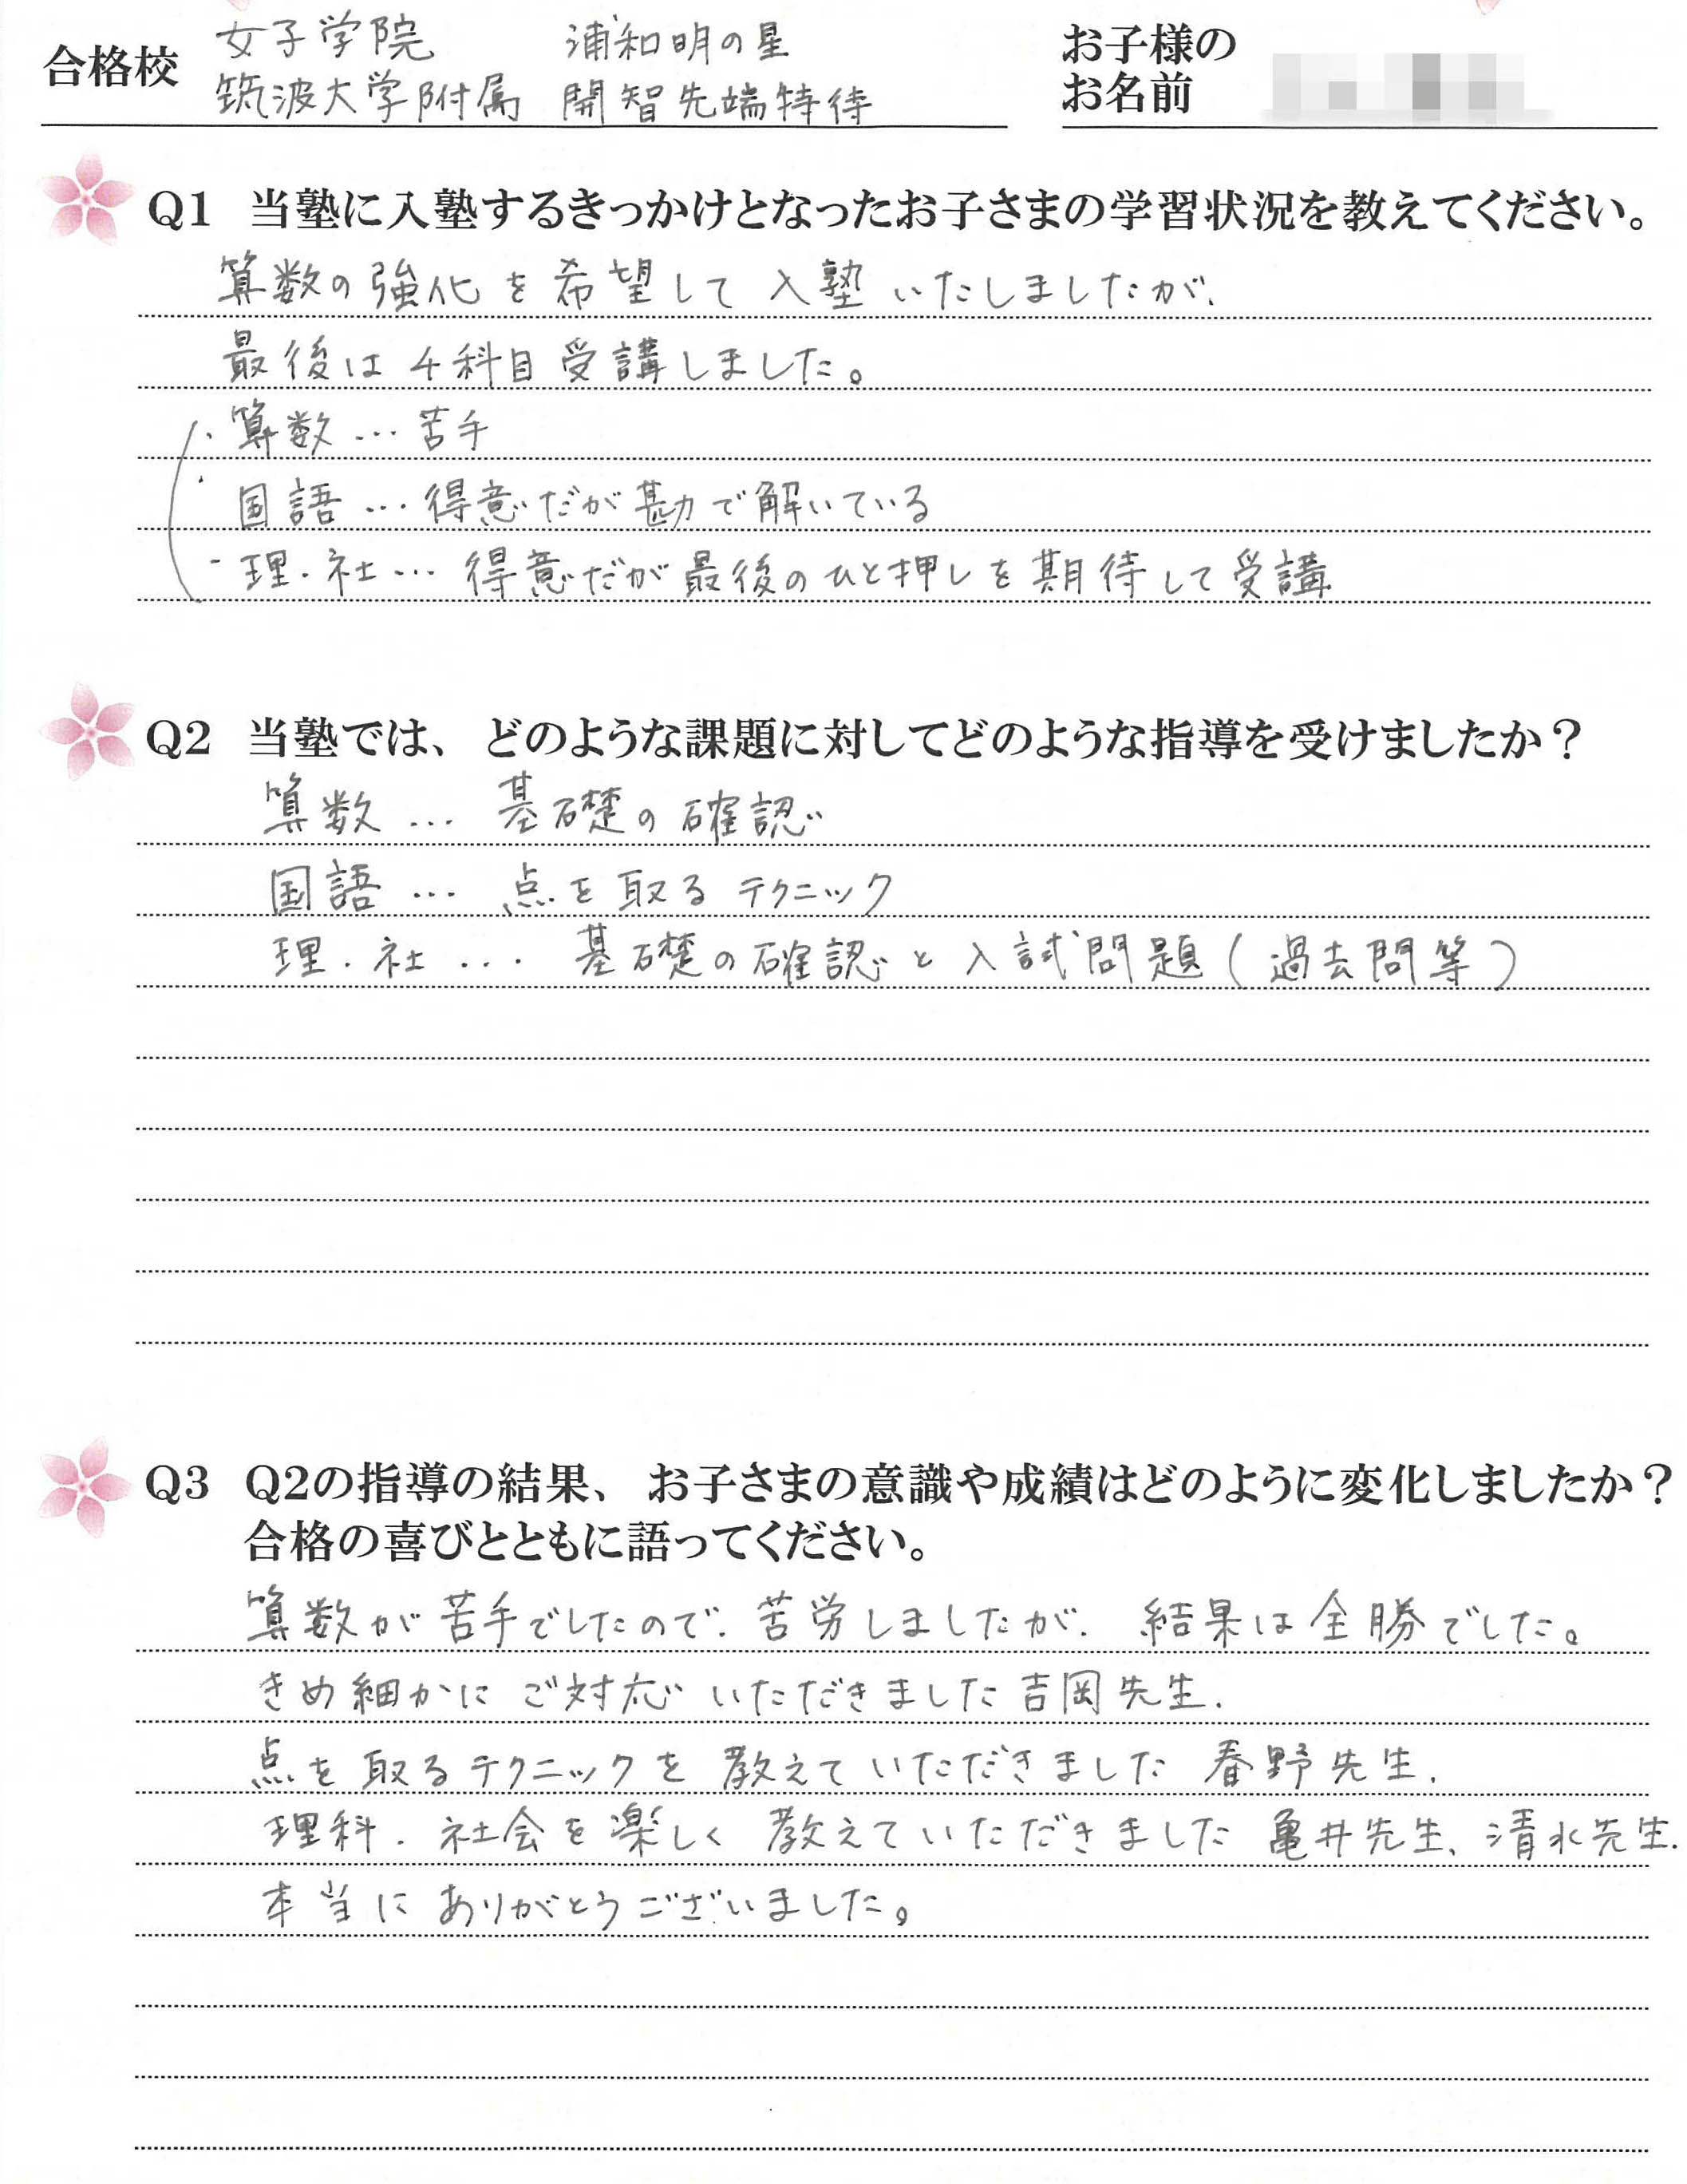 合格校
女子学院　浦和明の星
筑波大学附属　開智先端特待
お子様の
お名前
Q1 当塾に入塾するきっかけとなったお子さまの学習状況を教えてください。
算数の強化を希望して入塾いたしましたが、
最後は4科目受講しました。
・算数…苦手
・国語…得意だが勘で解いている
・理・社…得意だが最後のひと押しを期待して受講
Q2 当塾では、どのような課題に対してどのような指導を受けましたか？
算数…基礎の確認
国語…点を取るテクニック
理・社…基礎の確認と入試問題(過去問等)
Q3 Q2の指導の結果、お子さまの意識や成績はどのように変化しましたか？
合格の喜びとともに語ってください。
算数が苦手でしたので、苦労しましたが、結果は全勝でした。
きめ細かにご対応いただきました吉岡先生、
点を取るテクニックを教えていただきました春野先生、
理科、社会を楽しく教えていただきました亀井先生、清水先生、
本当にありがとうございました。